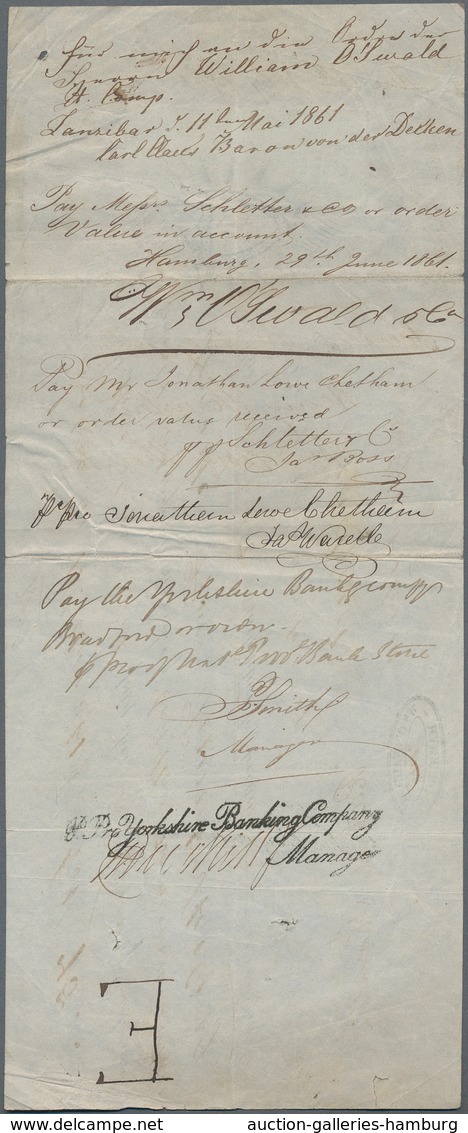 für mich an die Orden der
Herrn William O'Swald
& Comp.
Zanzibar d. 11 ten Mai 1861
Karl Claus Baron von der Decken
Pay Messrs. Schletter & Co or order
Value in account.
Hamburg, 29th June 1861.
Wm O'Swald & Co
Pay Mr Jonathan Lowe Chetham
or order value received
pp Schletter & Co
Jas Ross
Pr Pro Jonathan Lowe Chetham
Pay the Yorkshire Banking Compy
Bradford or order
Smith
Manager
Pr Pro Yorkshire Banking Company
Manager
E
www.delcampe.net
auction-galleries-hamburg